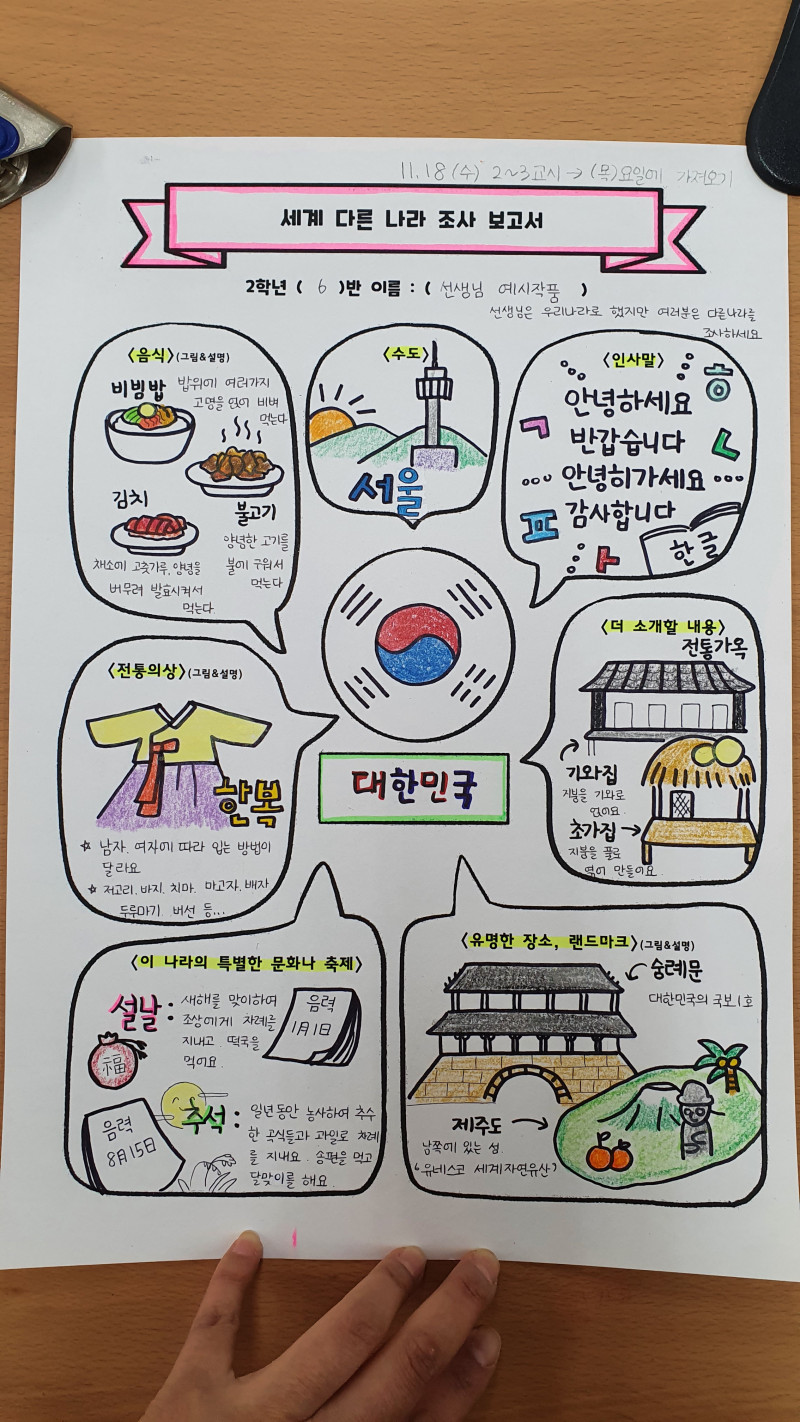 11.18 (수) 2~3교시 → (목)요일에 가져오기
세계 다른 나라 조사 보고서
2학년 ( 6 )반 이름 : ( 선생님 예시작품 )
선생님은 우리나라로 했지만 여러분은 다른나라를
조사하세요
<음식>(그림&설명)
비빔밥
밥위에 여러가지
고명을 얹어 비벼
먹는다
김치
채소에 고춧가루, 양념을
버무려 발효시켜서
먹는다
불고기
양념한 고기를
불에 구워서
먹는다
<수도>
서울
<인사말>
안녕하세요
반갑습니다
안녕히가세요
감사합니다
ㅎ
ㄱ
ㄴ
ㅍ
ㅏ
한글
<전통의상>(그림&설명)
한복
☆ 남자, 여자에 따라 입는 방법이
달라요
☆ 저고리, 바지, 치마, 마고자, 배자
두루마기, 버선 등...
대한민국
<더 소개할 내용>
전통가옥
기와집
지붕을 기와로
얹어요.
초가집 →
지붕을 풀로
엮어 만들어요.
<이 나라의 특별한 문화나 축제>
설날 :
새해를 맞이하여
조상에게 차례를
지내고 떡국을
먹어요.
음력
1月 1日
福
추석 :
일년동안 농사하여 추수
한 곡식들과 과일로 차례
를 지내요. 송편을 먹고
달맞이를 해요
음력
8月 15日
<유명한 장소, 랜드마크>(그림&설명)
숭례문
대한민국의 국보 1호
제주도 →
남쪽에 있는 섬.
'유네스코 세계자연유산'